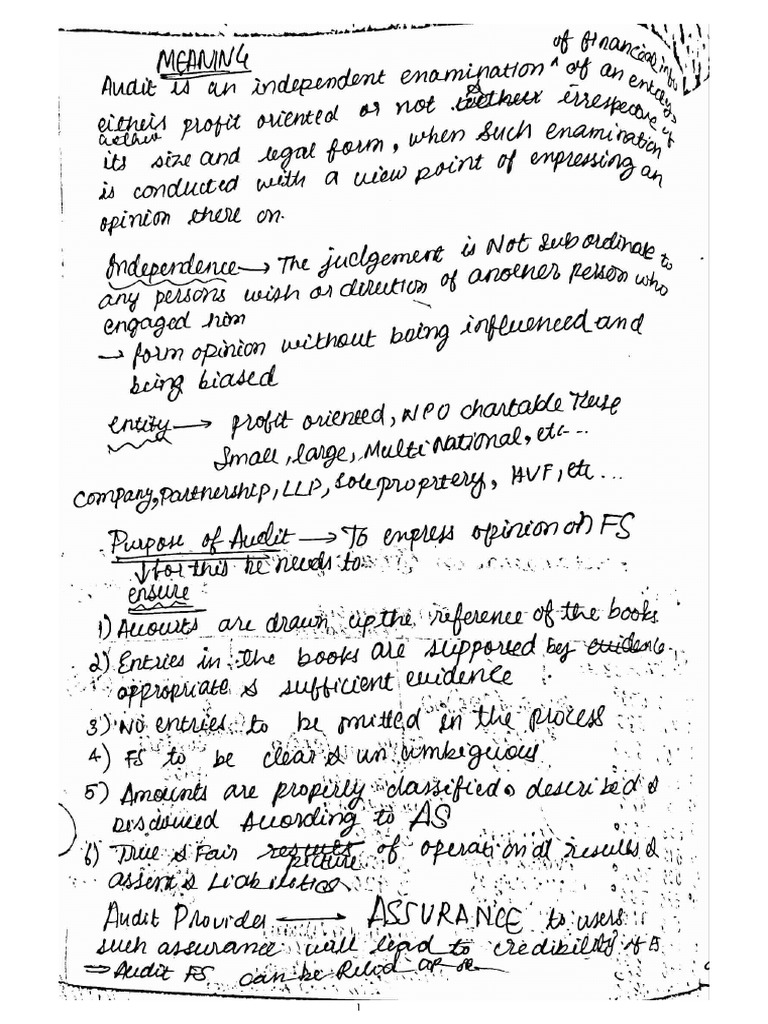 MEANING
Audit is an independent enamination ^ of financial info of an entity,
eitheis profit oriented or not irrespective of
wether
its size and legal form, when such enamination
is conducted with a view point of enpressing an
opinion there on.
Independence → The judgement is Not subordinate to
any persons wish or direction of another person who
engaged him
→ form opinion without being influenced and
being biased
entity → profit oriented, NPO chartable
Small, large, Multi National, etc...
Company, Partnership, LLP, Sole proprtery, HUF, etc...
Purpose of Audit → To enpress opinion on FS
↓ for this he needs to
ensure
1) Accounts are drawn up the reference of the books
2) Entries in the books are supported by evidence
appropriate & sufficient evidence
3) No entries to be omitted in the process
4) FS to be clear & un ambiguous
5) Amounts are properly classified, described &
Disclouced According to AS
6) True & Fair results of operational results &
picture
assent & Liabilities
Audit Provides → ASSURANCE to users
such assurance will lead to credibility of
⇒ Audit FS can be Relied
1